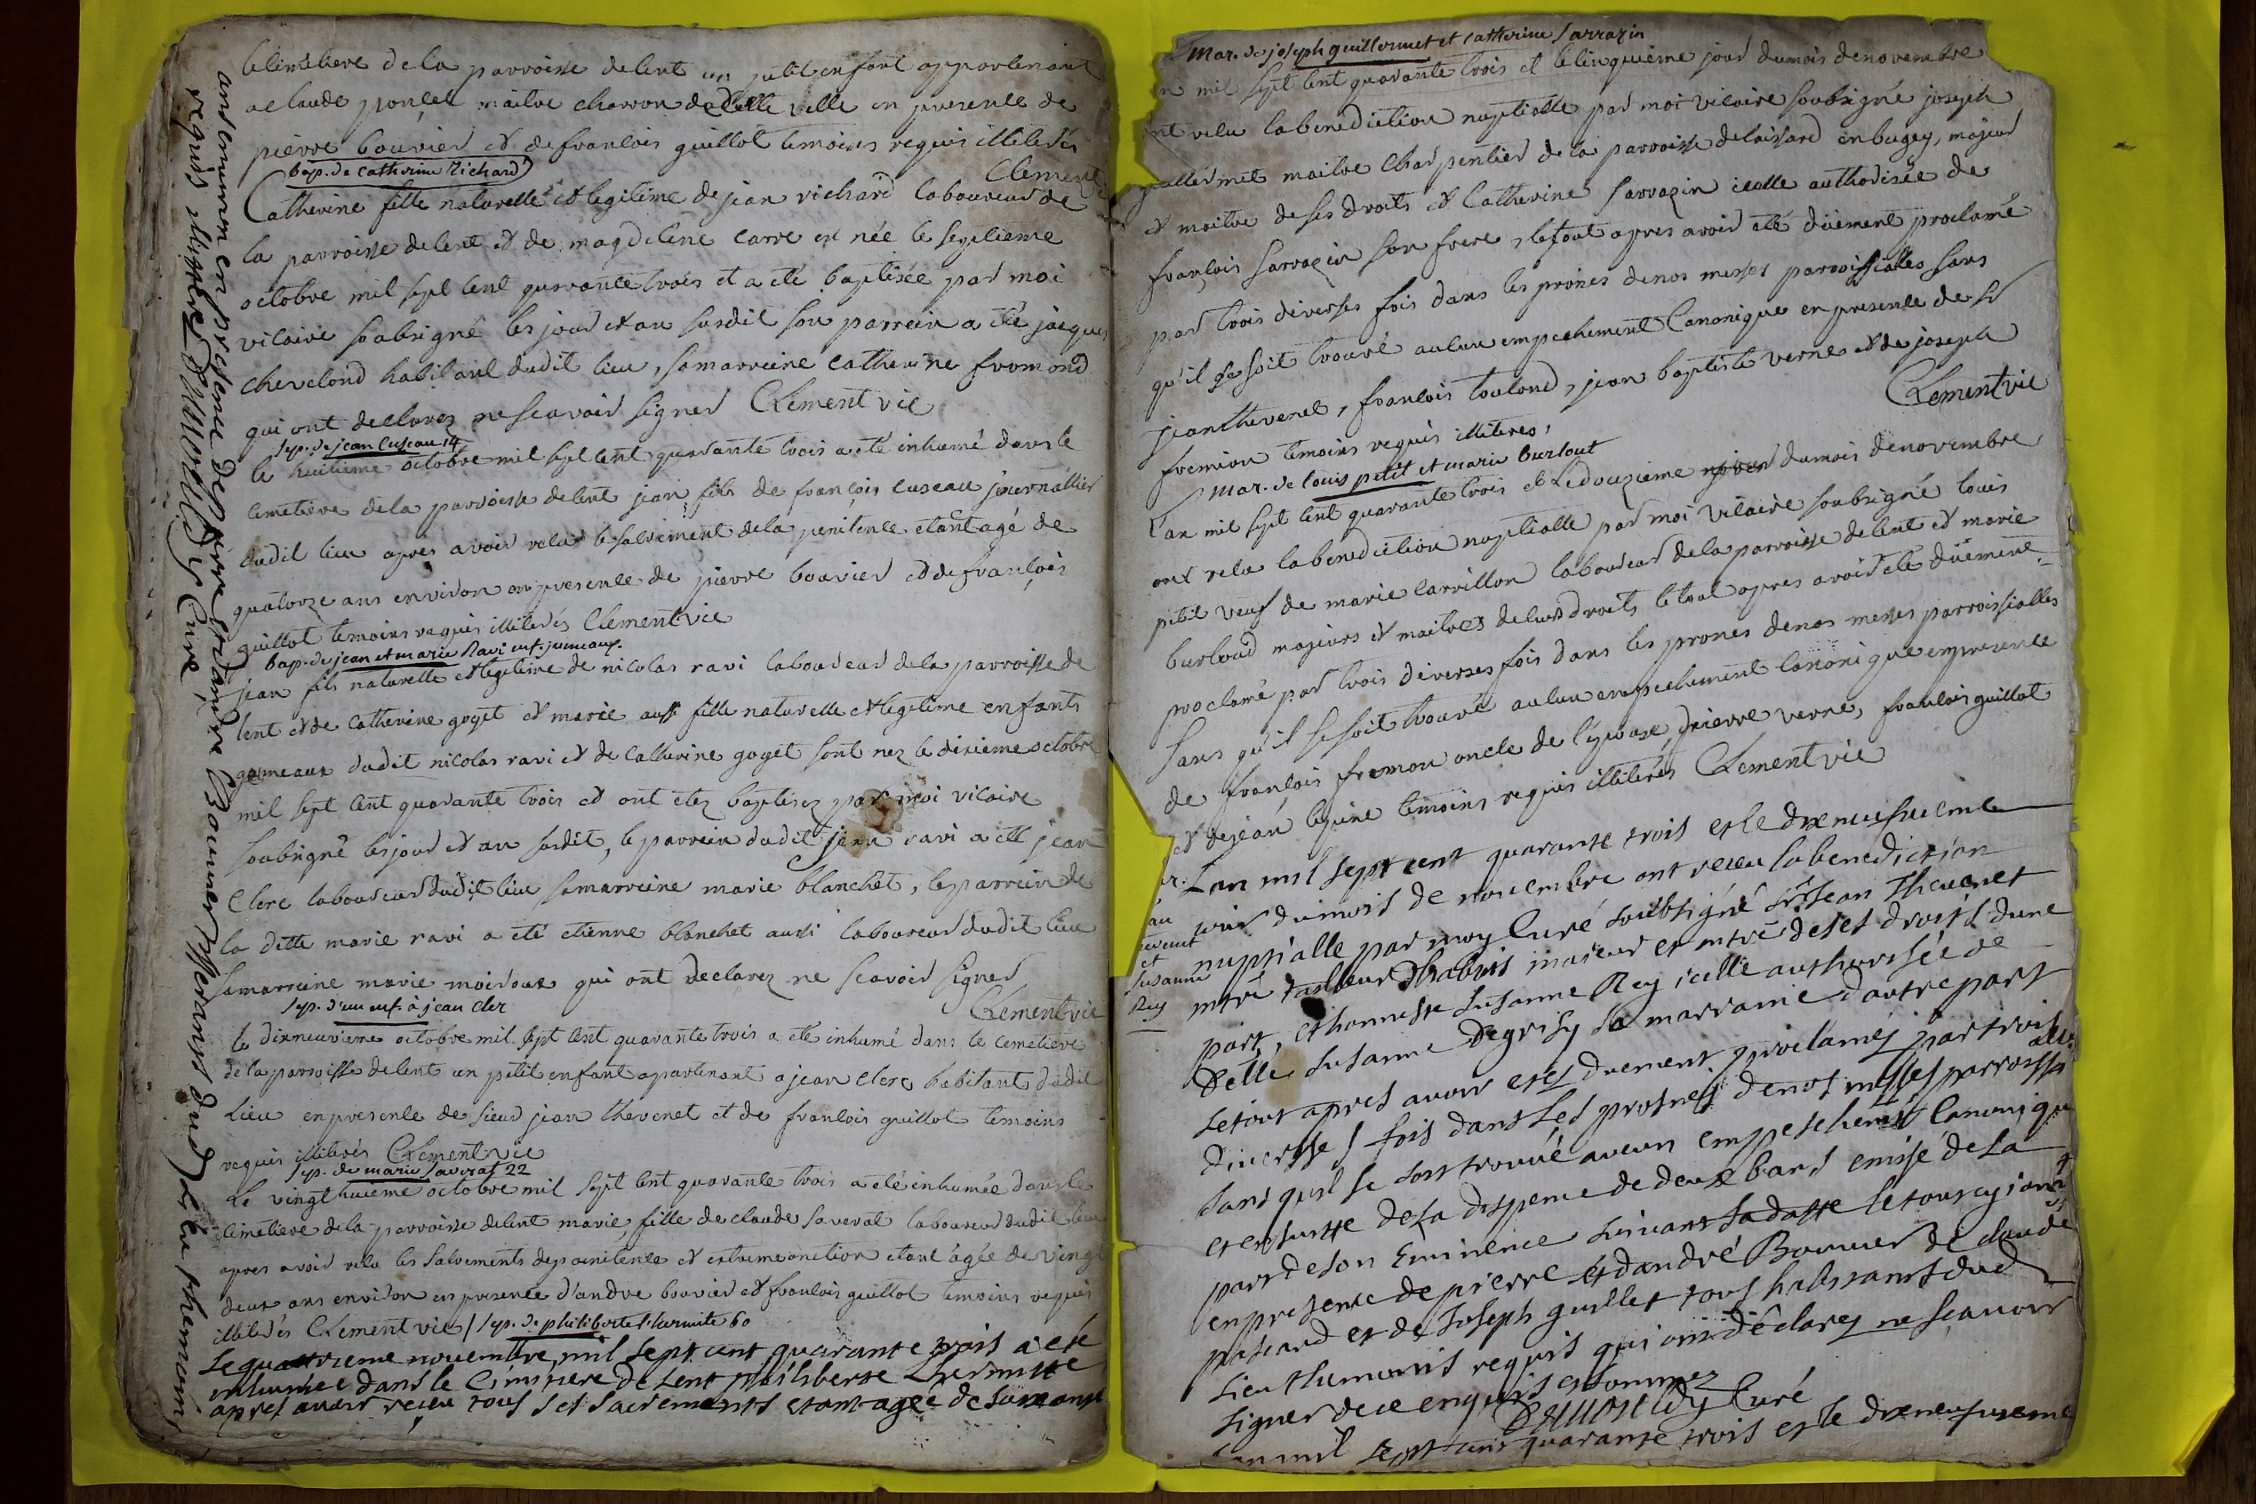 le cimetiere de la parroisse de lent un petit enfant appartenant
a claude poncet maitre charron de cette ville en presence de
pierre bouvier et de francois guillot temoins requis illiterés
Clement
bap. de catherine Richard
Catherine fille naturelle et legitime de jean richard laboureur de
la parroisse de lent et de magdelene carre est née le septieme
octobre mil sept cent quarante trois et a eté baptisée par moi
vicaire soubsigné les jour et an susdit son parrein a eté jacques
chevelond habitant dudit lieu, sa marreine catherine fromond
qui ont declarez ne scavoir signer Clement vic
sep. de jean cuseau 14
le huitieme octobre mil sept cent quarante trois a eté inhumé dans le
cemetiere de la parroisse de lent jean fils de françois cuseau journallier
dudit lieu apres avoir recu le sacrement de la penitence etant agé de
quatorze ans environ en presence de pierre bouvier et de françois
guillot temoins requis illiterés Clement vic
bap. de jean et marie Ravi enf. jumeaux.
jean fils naturelle et legitime de nicolas ravi laboureur de la parroisse de
lent et de catherine goyet et marie aussi fille naturelle et legitime enfants
gemeaux dudit nicolas ravi et de catherine goyet sont nez le dixieme octobre
mil sept cent quarante trois et ont etez baptisez par moi vicaire
soubsigné les jour et an susdit, le parrein dudit jean ravi a eté jean
Clerc laboureur dudit lieu sa marreine marie blanchet, le parrein de
la ditte marie ravi a eté etienne blanchet aussi laboureur dudit lieu
sa marreine marie moiroux qui ont declarez ne scavoir signer
Clement vic
sep. d'un enf. à jean cler
le dixneuvieme octobre mil sept cent quarante trois a eté inhumé dans le cemetiere
de la parroisse de lent un petit enfant apartenant a jean clerc habitant dudit
lieu en presence de sieur jean thevenet et de francois guillot temoins
requis illiterés Clement vic
sep. de marie saverat 22
Le vingt huitieme octobre mil sept cent quarante trois a eté inhumée dans le
cimetiere de la parroisse de lent marie fille de claude saverat laboureur dudit lieu
apres avoir recu les sacrements de penitence et extremeonction etant agée de vingt
deux ans environ en presence d'andre bouvier et francois guillot temoins requis
illiterés Clement vic / sep. de philiberte l'hermite 60
Le quattrieme novembre mil sept cent quarante trois a eté
inhumée dans le Cimitiere de Lent philiberte Lhermitte
apres avoir receu tous ses sacrements etant agée de soixante
ans environ en presence de pierre et andre Bouvier Manans dud Lieu themoins
requis Curé
Mar. de joseph guillermet et catherine Sarrazin
mil sept cent quarante trois et le cinquieme jour du mois de novembre
ont recu la benediction nuptialle par moi vicaire soubsigné joseph
guillermet maitre charpentier de la parroisse de en bugey, majeur
et maitre de ses droits et Catherine Sarrazin icelle authorisée de
françois Sarrazin son frere, le tout apres avoir eté düement proclamé
par trois diverses fois dans les prones de nos messes parroissialles sans
qu'il se soit trouvé aucun empechement Canonique en presence de sr
jean thevenet, francois toulond, jean baptiste verne et de joseph
fremion temoins requis illiteres,
Clement vic
Mar. de louis petit et marie burloud
L'an mil sept cent quarante trois et le douzieme du mois de novembre
ont recu la benediction nuptialle par moi vicaire soubsigné louis
petit veuf de marie carrillon laboureur de la parroisse de lent et marie
burloud majeurs et maitres de leurs droits le tout apres avoir eté düement
proclamé par trois diverses fois dans les prones de nos messes parroissialles
sans qu'il se soit trouvé aucun empechement canonique en presence
de françois fremon oncle de l'epouse, pierre verne, francois guillot
et de jean temoins requis illiterés Clement vic
Lan mil sept cent quarante trois et le dixneufvieme
jour du mois de novembre ont receu la benediction
nuptialle par moy Curé soubsigné sr Jean Thevenet
et
Susanne
Rey
mtre tailleur d'habits majeur et mtre de ses droits dune
part, et honneste Susanne Rey icelle authorisée de
Delle Susanne Degrisy sa marraine d'autre part
Le tout apres avoir etes duement proclamés par trois
diversses fois dans Les prosnes de nos messes parroissialles
sans quil se soit trouvé aucun empeschement Canonique
et en suitte de La dispence de deux bans emise de La
part de son Eminence suivant sa datte Le tout cy joint
en presence de pierre et dandré Bouvier de claude
pascard et de Joseph guillet tous habitants dud
Lieu themoins requis qui ont déclarez ne scavoir
signer de ce enquis et sommez
Curé
Lan mil sept cent quarante trois et le dixneufvieme